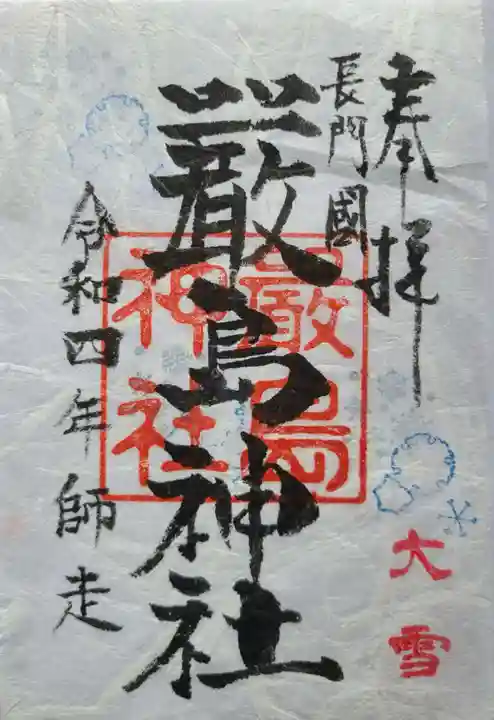 奉拝
長門國
厳島神社
嚴島
神社
令和四年師走
大雪